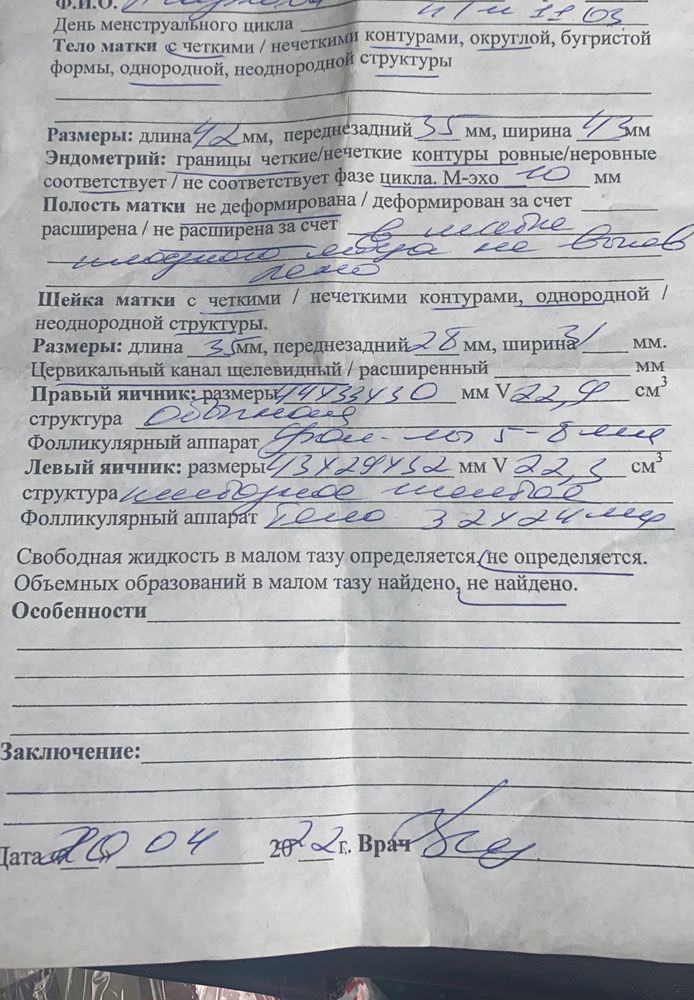 Ф.И.О.
День менструального цикла П М 11.03
Тело матки с четкими / нечеткими контурами, округлой, бугристой
формы, однородной, неоднородной структуры
Размеры: длина 42 мм, переднезадний 35 мм, ширина 43 мм
Эндометрий: границы четкие/нечеткие контуры ровные/неровные
соответствует / не соответствует фазе цикла. М-эхо 10 мм
Полость матки не деформирована / деформирован за счет
расширена / не расширена за счет в матке
плодного яйца не выяв
лено
Шейка матки с четкими / нечеткими контурами, однородной /
неоднородной структуры.
Размеры: длина 35 мм, переднезадний 28 мм, ширина 31 мм.
Цервикальный канал щелевидный / расширенный мм
Правый яичник: размеры 44х33х30 мм V 22,9 см³
структура Обычная
Фолликулярный аппарат фол-лы 5-8 мм
Левый яичник: размеры 43х29х32 мм V 22,3 см³
структура желтое
Фолликулярный аппарат тело 32х24 мм
Свободная жидкость в малом тазу определяется, не определяется.
Объемных образований в малом тазу найдено, не найдено.
Особенности
Заключение:
Дата 20 04 2022 г. Врач